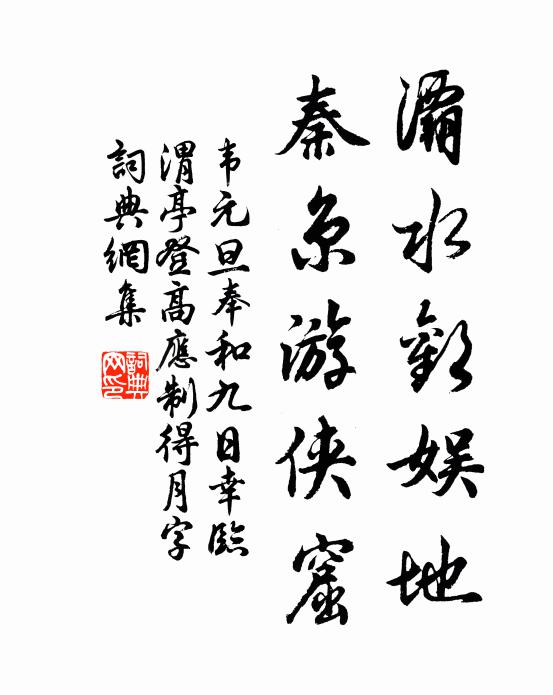 灞水歡娛地
秦京游俠窟
韦元旦奉和九日幸臨
渭亭登高應制得月字
詞典網集
詞典網印